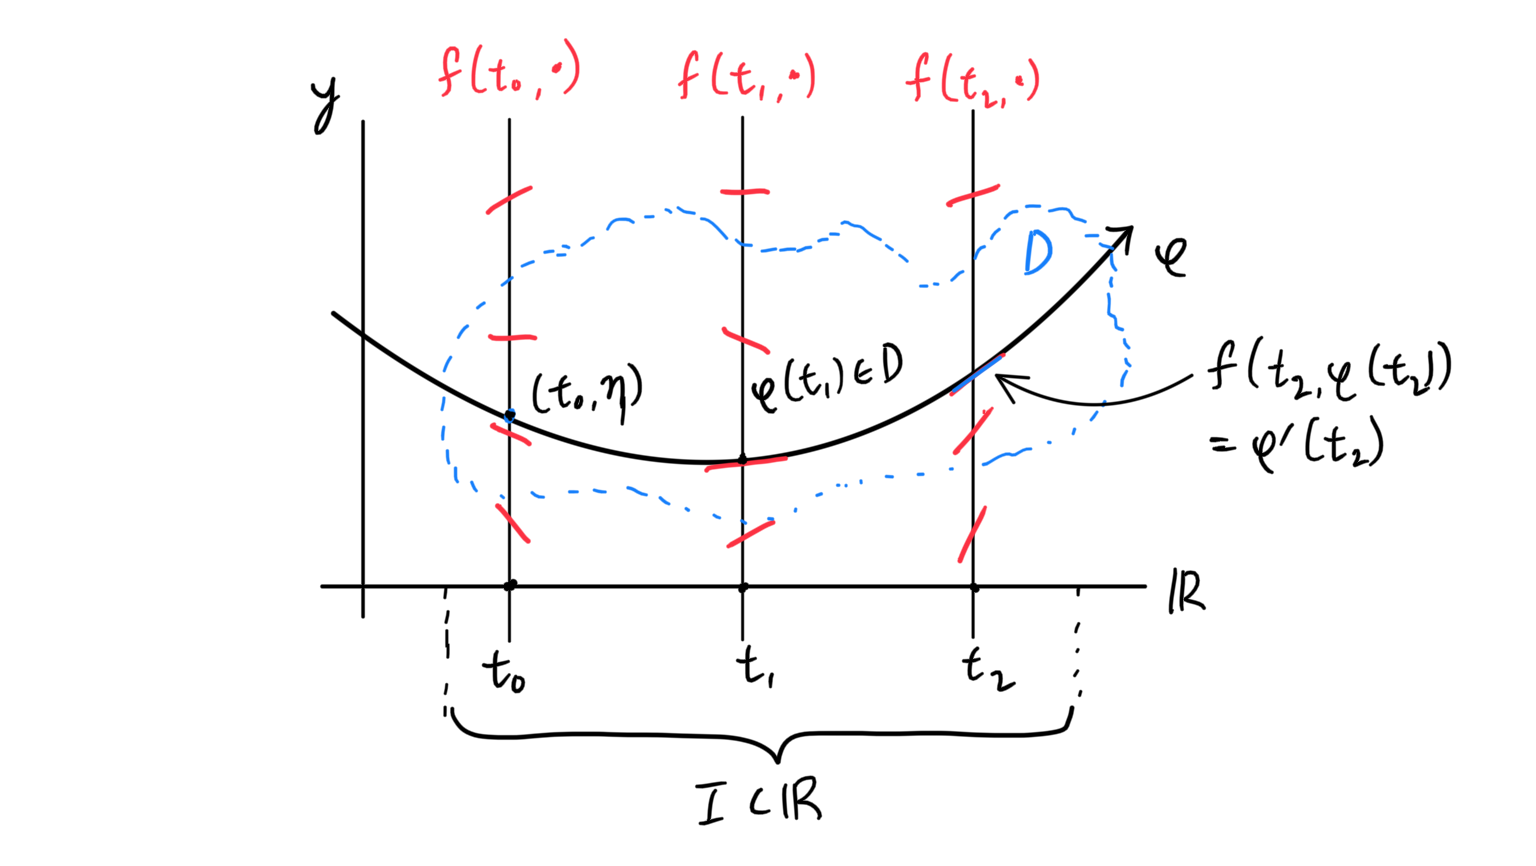 y
f(t₀,·)
f(t₁,·)
f(t₂,·)
D
φ
(t₀,η)
φ(t₁)∈D
f(t₂,φ(t₂))
= φ′(t₂)
ℝ
t₀
t₁
t₂
I⊂ℝ